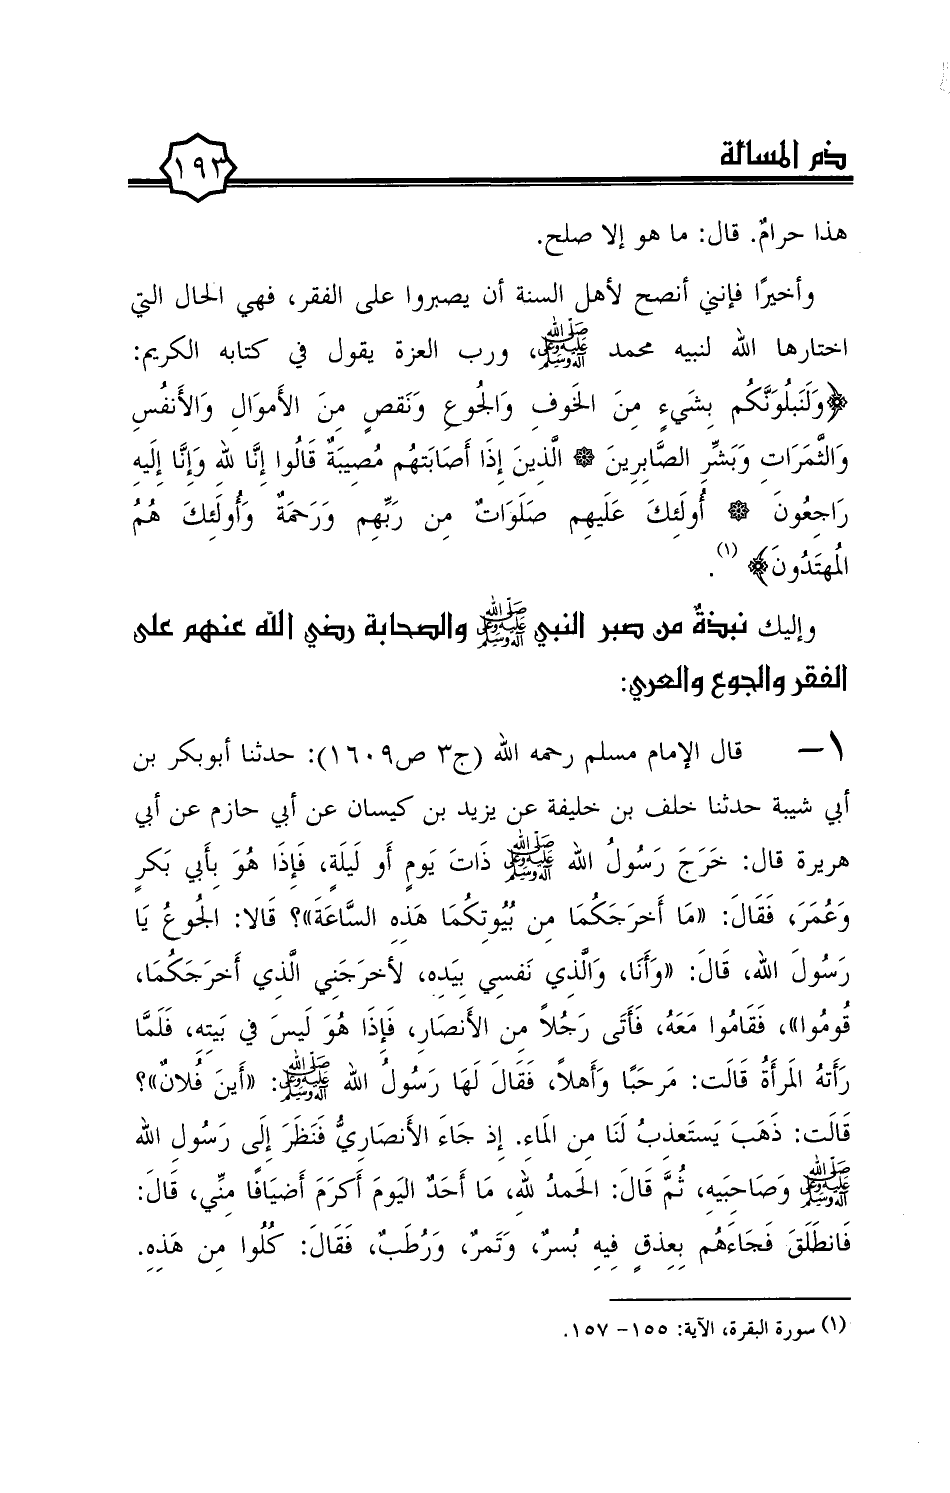 ذم المسألة
١٩٣
هذا حرامٌ. قال: ما هو إلا صلح.
وأخيرًا فإنني أنصح لأهل السنة أن يصبروا على الفقر، فهي الحال التي
اختارها الله لنبيه محمد ﷺ، ورب العزة يقول في كتابه الكريم:
﴿وَلَنَبلُوَنَّكُم بِشَيءٍ مِنَ الخَوفِ وَالجُوعِ وَنَقصٍ مِنَ الأَموَالِ وَالأَنفُسِ
وَالثَّمَرَاتِ وَبَشِّرِ الصَّابِرِينَ * الَّذِينَ إِذَا أَصَابَتهُم مُصِيبَةٌ قَالُوا إِنَّا لله وَإِنَّا إِلَيهِ
رَاجِعُونَ * أُولَئِكَ عَلَيهِم صَلَوَاتٌ مِن رَبِّهِم وَرَحمَةٌ وَأُولَئِكَ هُمُ
المُهتَدُونَ﴾ (١).
وإليك نبذةٌ من صبر النبي ﷺ والصحابة رضي الله عنهم على
الفقر والجوع والعري:
١- قال الإمام مسلم رحمه الله (ج٣ ص١٦٠٩): حدثنا أبوبكر بن
أبي شيبة حدثنا خلف بن خليفة عن يزيد بن كيسان عن أبي حازم عن أبي
هريرة قال: خَرَجَ رَسُولُ الله ﷺ ذَاتَ يَومٍ أَو لَيلَةٍ، فَإِذَا هُوَ بِأَبِي بَكرٍ
وَعُمَرَ، فَقَالَ: «مَا أَخرَجَكُمَا مِن بُيُوتِكُمَا هَذِهِ السَّاعَةَ»؟ قَالا: الجُوعُ يَا
رَسُولَ الله، قَالَ: «وَأَنَا، وَالَّذِي نَفسِي بِيَدِهِ، لأَخرَجَنِي الَّذِي أَخرَجَكُمَا،
قُومُوا»، فَقَامُوا مَعَهُ، فَأَتَى رَجُلاً مِن الأَنصَارِ، فَإِذَا هُوَ لَيسَ فِي بَيتِهِ، فَلَمَّا
رَأَتهُ المَرأَةُ قَالَت: مَرحَبًا وَأَهلاً، فَقَالَ لَهَا رَسُولُ الله ﷺ: «أَينَ فُلانٌ»؟
قَالَت: ذَهَبَ يَستَعذِبُ لَنَا مِن المَاءِ. إِذ جَاءَ الأَنصَارِيُّ فَنَظَرَ إِلَى رَسُولِ الله
ﷺ وَصَاحِبَيهِ، ثُمَّ قَالَ: الحَمدُ لله، مَا أَحَدٌ اليَومَ أَكرَمَ أَضيَافًا مِنِّي، قَالَ:
فَانطَلَقَ فَجَاءَهُم بِعِذقٍ فِيهِ بُسرٌ، وَتَمرٌ، وَرُطَبٌ، فَقَالَ: كُلُوا مِن هَذِهِ.
(١) سورة البقرة، الآية: ١٥٥- ١٥٧.